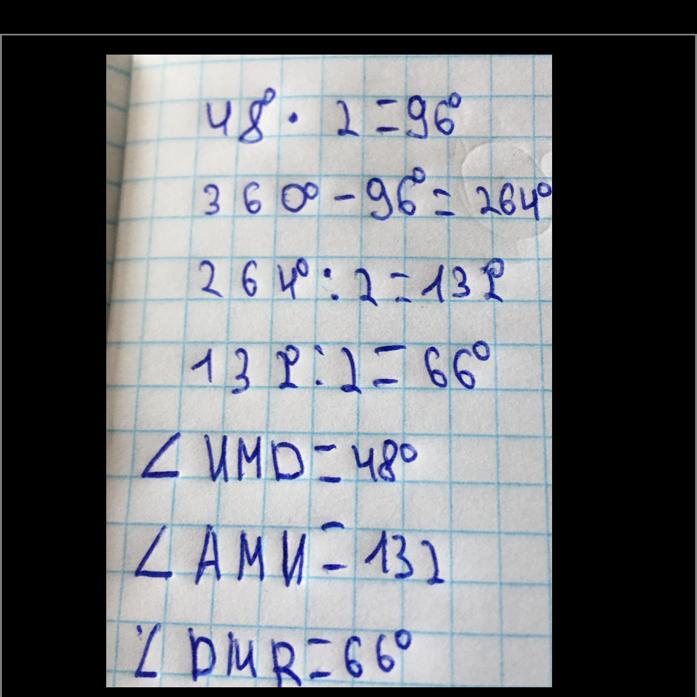 48° · 2 = 96°
360° - 96° = 264°
264° : 2 = 132
132 : 2 = 66°
∠ UMD = 48°
∠ AMU = 132
∠ DMR = 66°